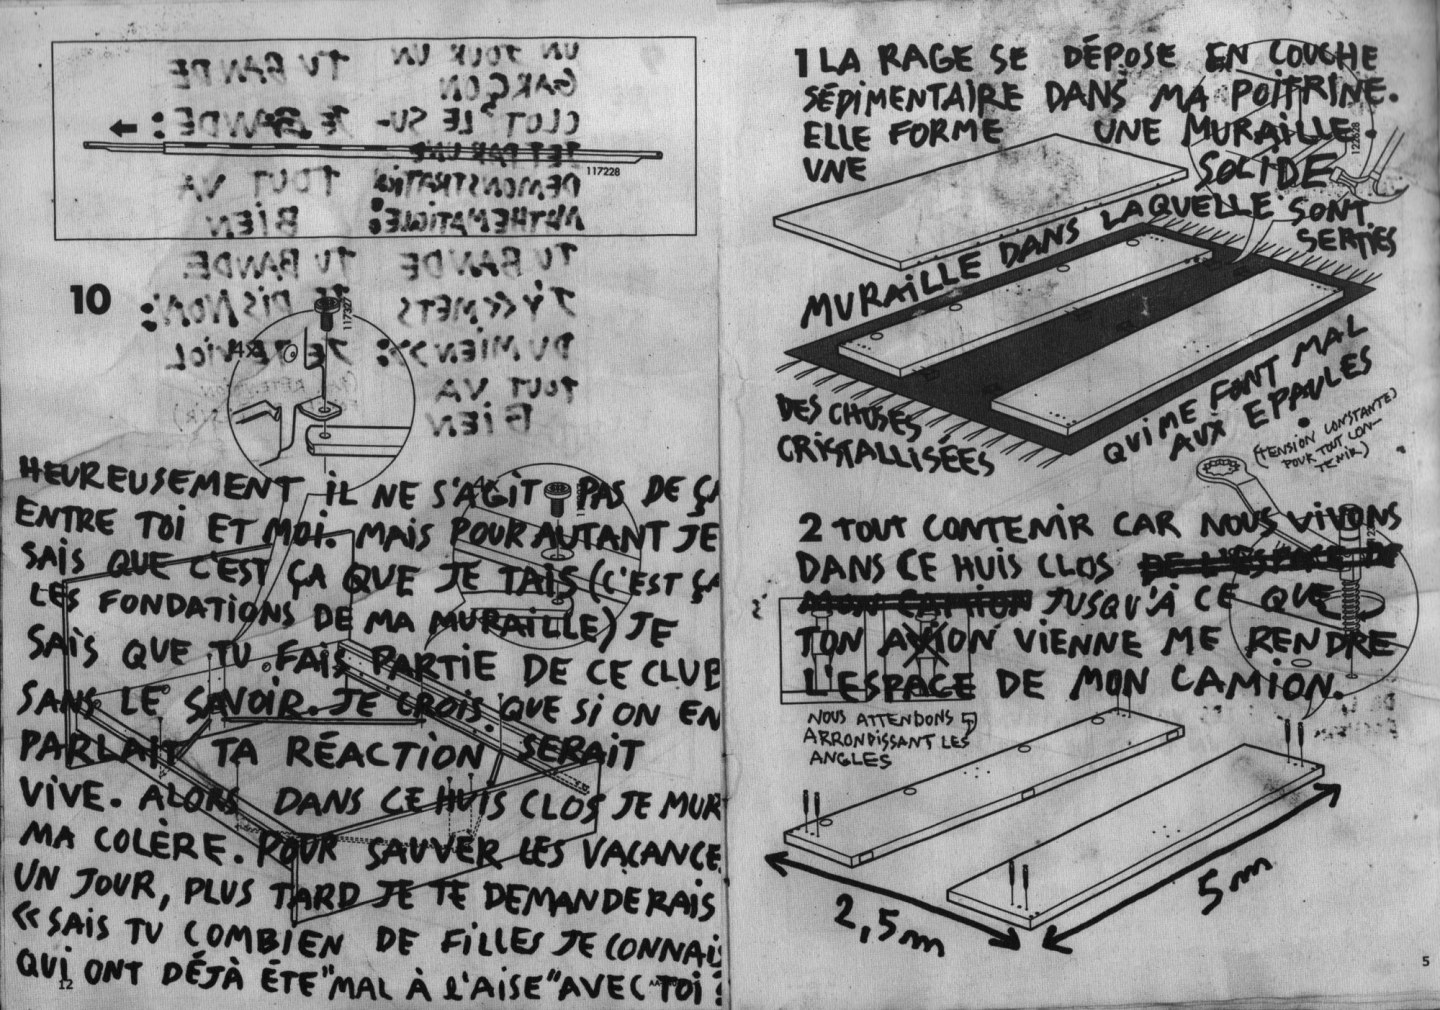 117228
10
117327
4x
HEUREUSEMENT IL NE S'AGIT PAS DE ÇA
ENTRE TOI ET MOI. MAIS POUR AUTANT JE
SAIS QUE C'EST ÇA QUE JE TAIS (C'EST ÇA
LES FONDATIONS DE MA MURAILLE) JE
SAIS QUE TU FAIS PARTIE DE CE CLUB
SANS LE SAVOIR. JE CROIS QUE SI ON EN
PARLAIT TA RÉACTION SERAIT
VIVE. ALORS DANS CE HUIS CLOS JE MUR
MA COLÈRE. POUR SAUVER LES VACANCE
UN JOUR, PLUS TARD JE TE DEMANDERAIS
«SAIS TU COMBIEN DE FILLES JE CONNAIS
QUI ONT DÉJÀ ÉTÉ "MAL À l'AISE" AVEC TOI ?
12
TU BANDE UN JOUR UN
GARÇON
JE BANDE: CLOT LE SU-
JET PAR UNE
TOUT VA DEMONSTRATION
BIEN MATHEMATIQUE:
TU BANDE TU BANDE
JE DIS NON: J'Y «METS
JE TE VIOL DU MIEN»:
TOUT VA
BIEN
1 LA RAGE SE DÉPOSE EN COUCHE
SÉDIMENTAIRE DANS MA POITRINE.
ELLE FORME UNE MURAILLE.
UNE SOLIDE
MURAILLE DANS LAQUELLE SONT
SERTIES
DES CHOSES
CRISTALLISÉES
QUI ME FONT MAL
AUX EPAULES
(TENSION CONSTANTE)
POUR TOUT CON-
TENIR)
122628
2 TOUT CONTENIR CAR NOUS VIVONS
DANS CE HUIS CLOS DE L'ESPACE DE
MON CAMION JUSQU'À CE QUE
TON AVION VIENNE ME RENDRE
L'ESPACE DE MON CAMION.
NOUS ATTENDONS
ARRONDISSANT LES
ANGLES
2,5m
5m
5